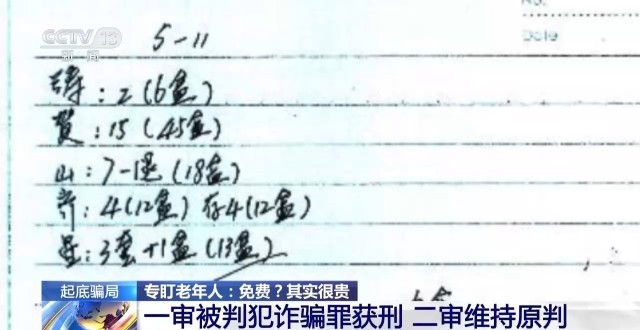 CCTV 13
新闻
No.
Date
5-11
: 2(6盒)
贺: 15(45盒)
山: 7-1退(18盒)
齐: 4(12盒) 存4(12盒)
: 3套+1盒(13盒)
起底骗局 专盯老年人：免费？其实很贵
一审被判犯诈骗罪获刑 二审维持原判